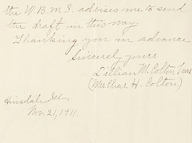 the W.B.M.I. advises me to send
the draft in this way.
Thanking you in advance
Sincerely yours
Lillian M. Colton
(Mrs. Chas. H. Colton)
Hinsdale Ill.
Nov. 21, 1911.